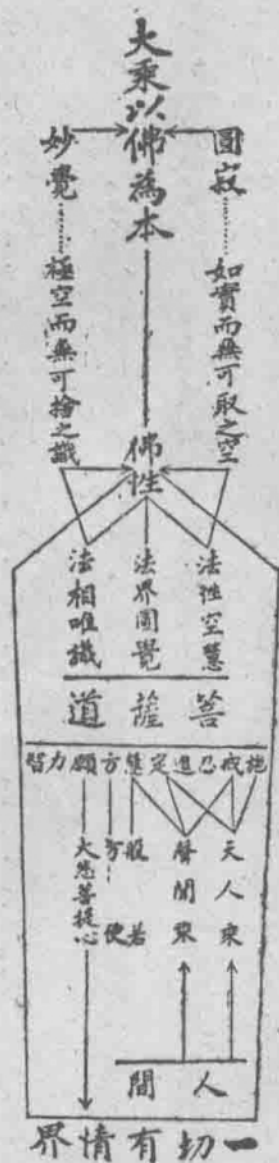 大乘以佛為本
圓寂……如實而無可取之空
妙覺……極空而無可捨之識
佛性
法性空慧
法界圓覺
法相唯識
菩薩道
施戒忍進定慧方願力智
天人乘
聲聞乘
般若
方便
大悲菩提心
人間
一切有情界